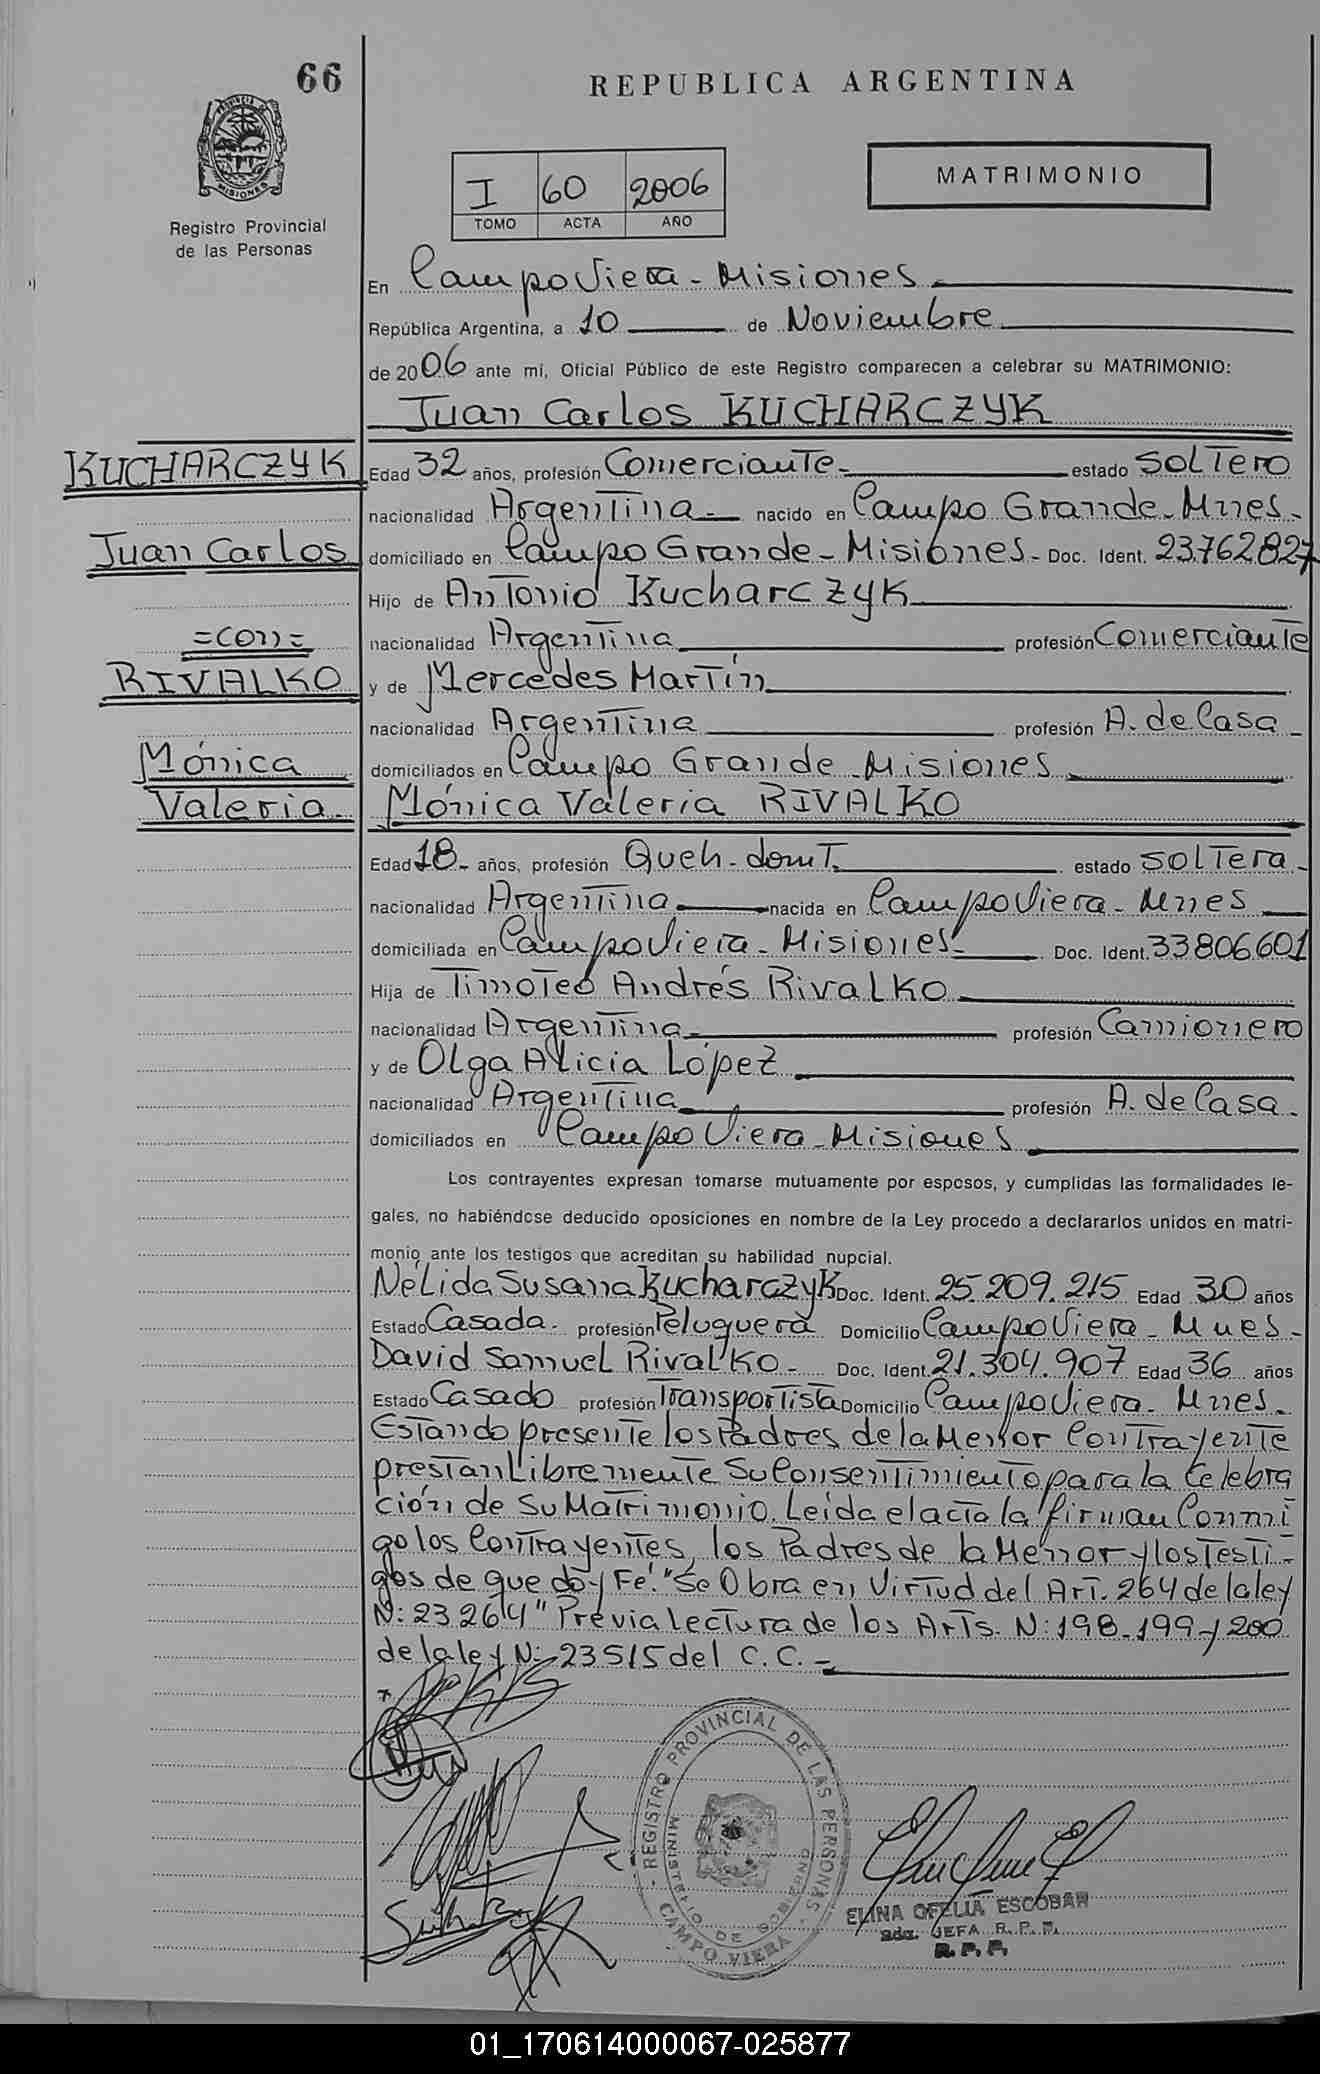 66
REPUBLICA ARGENTINA
PROVINCIA DE
MISIONES
Registro Provincial
de las Personas
MATRIMONIO
I 60 2006
TOMO ACTA AÑO
En Campo Viera - Misiones
República Argentina, a 10 de Noviembre
de 2006 ante mi, Oficial Público de este Registro comparecen a celebrar su MATRIMONIO:
Juan Carlos KUCHARCZYK
KUCHARCZYK
Juan Carlos
=con=
RIVALKO
Mónica
Valeria
Edad 32 años, profesión Comerciante - estado soltero
nacionalidad Argentina - nacido en Campo Grande - Mnes -
domiciliado en Campo Grande - Misiones - Doc. Ident. 23.762.827
Hijo de Antonio Kucharczyk
nacionalidad Argentina profesión Comerciante
y de Mercedes Martín
nacionalidad Argentina profesión A. de Casa -
domiciliados en Campo Grande - Misiones
Mónica Valeria RIVALKO
Edad 18 - años, profesión Queh - domt. estado soltera -
nacionalidad Argentina nacida en Campo Viera - Mnes
domiciliada en Campo Viera - Misiones - Doc. Ident. 33806601
Hija de Timoteo Andrés Rivalko
nacionalidad Argentina - profesión Camionero
y de Olga Alicia López
nacionalidad Argentina profesión A. de Casa -
domiciliados en Campo Viera - Misiones
Los contrayentes expresan tomarse mutuamente por esposos, y cumplidas las formalidades le-
gales, no habiéndose deducido oposiciones en nombre de la Ley procedo a declararlos unidos en matri-
monio ante los testigos que acreditan su habilidad nupcial.
Nélida Susana Kucharczyk Doc. Ident. 25.209.215 Edad 30 años
Estado Casada - profesión Peluquera Domicilio Campo Viera - Mnes -
David Samuel Rivalko - Doc. Ident. 21.304.907 Edad 36 años
Estado Casado profesión Transportista Domicilio Campo Viera - Mnes.
Estando presente los Padres de la Menor Contrayente
prestan Libremente Su Consentimiento para la Celebra
ción de Su Matrimonio. Leída el acta la firman Conmi
go los Contrayentes, los Padres de la Menor y los Testi-
gos de que doy Fe. "Se Obra en Virtud del Art. 264 de la ley
N: 23264" Previa Lectura de los Arts. N: 198-199 y 200
de la ley N: 23515 del C.C. -
- REGISTRO PROVINCIAL DE LAS PERSONAS -
MINISTERIO DE GOBIERNO
CAMPO VIERA
ELINA OFELIA ESCOBAR
JEFA R. P. P.
R. P. P.
01_170614000067-025877